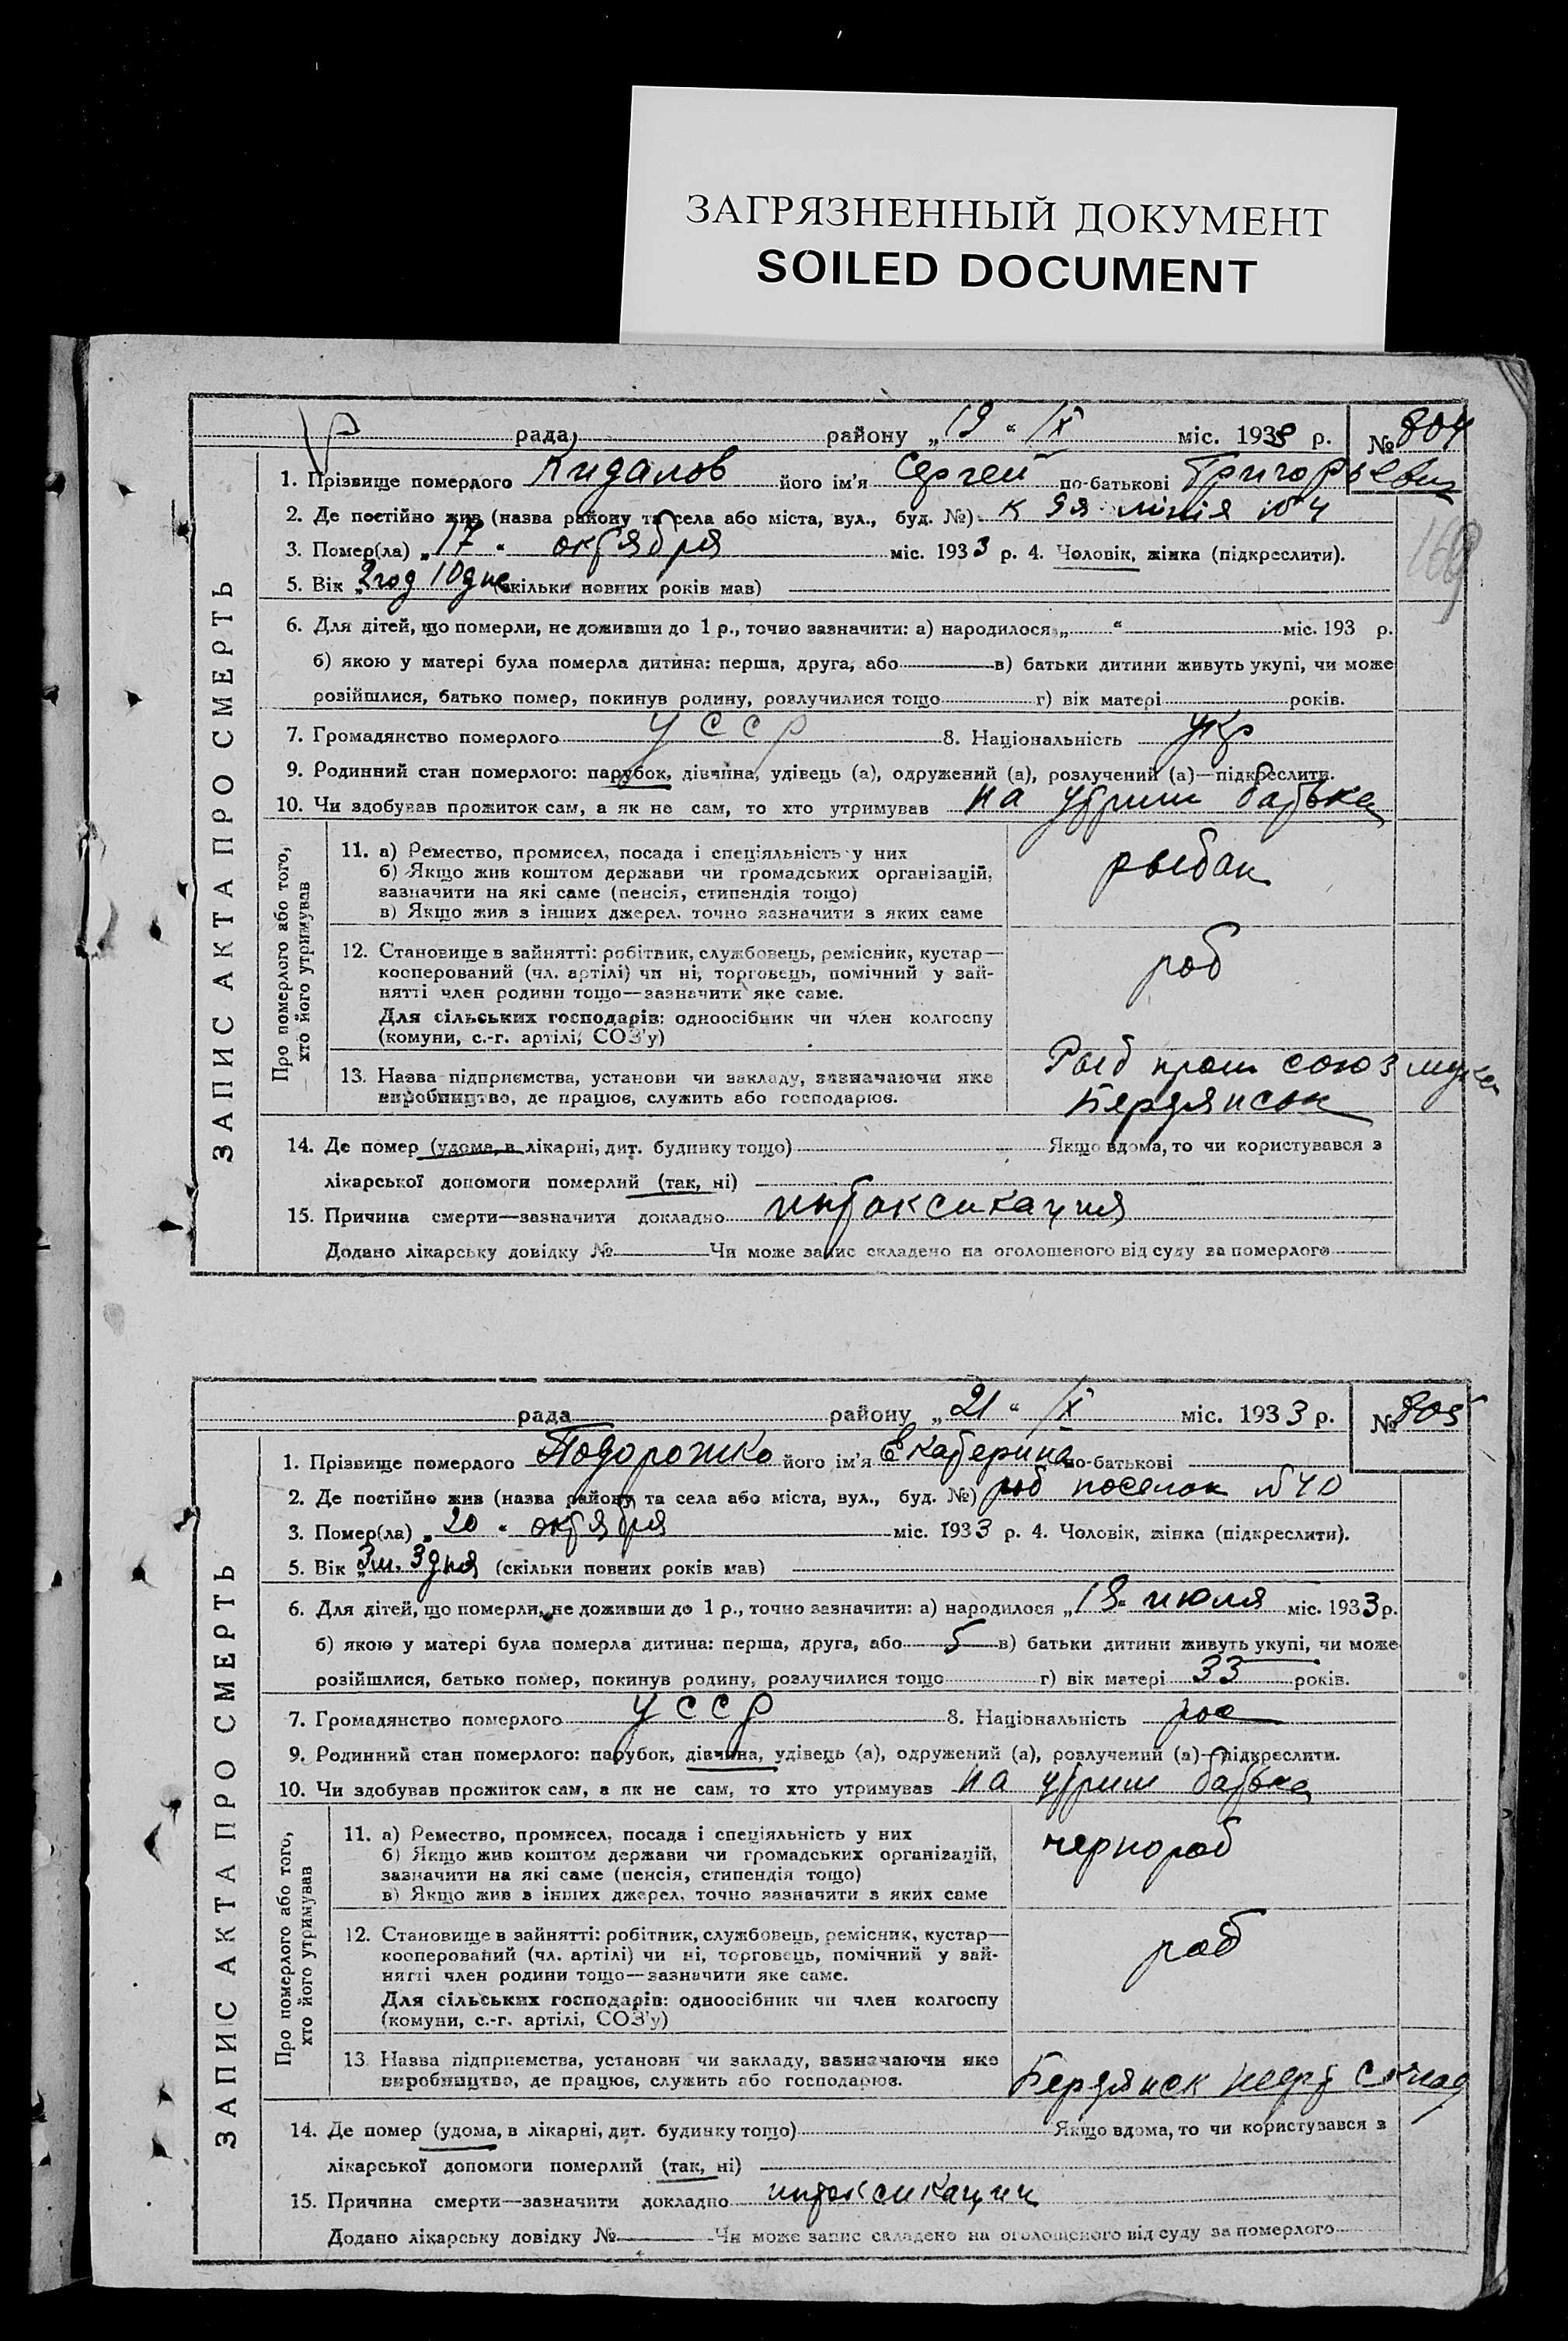 ЗАГРЯЗНЕННЫЙ ДОКУМЕНТ
SOILED DOCUMENT
рада району „19“ IX міс. 1933 р. № 804
1. Прізвище померлого Кидалов його ім'я Сергей по-батькові Григорьевич
2. Де постійно жив (назва району та села або міста, вул., буд. №) к 9я линия № 4
3. Помер(ла) „17“ октября міс. 1933 р. 4. Чоловік, жінка (підкреслити).
5. Вік „2 год 10 дне (скільки повних років мав)
6. Для дітей, що померли, не доживши до 1 р., точно зазначити: а) народилося „ “ міс. 193 р.
б) якою у матері була померла дитина: перша, друга, або в) батьки дитини живуть укупі, чи може
розійшлися, батько помер, покинув родину, розлучилися тощо г) вік матері років.
7. Громадянство померлого УССР 8. Національність укр
9. Родинний стан померлого: парубок, дівчина, удівець (а), одружений (а), розлучений (а)—підкреслити.
10. Чи здобував прожиток сам, а як не сам, то хто утримував на утрим батька
ЗАПИС АКТА ПРО СМЕРТЬ
Про померлого або того, хто його утримував
11. а) Ремество, промисел, посада і спеціяльність у них рыбак
б) Якщо жив коштом держави чи громадських організацій,
зазначити на які саме (пенсія, стипендія тощо)
в) Якщо жив з інших джерел, точно зазначити з яких саме
12. Становище в зайнятті: робітник, службовець, ремісник, кустар— роб
кооперований (чл. артілі) чи ні, торговець, помічний у зай-
нятті член родини тощо—зазначити яке саме.
Для сільських господарів: одноосібник чи член колгоспу
(комуни, с.-г. артілі, СОЗ'у)
13. Назва підприємства, установи чи закладу, зазначаючи яке Рыб пром союз
виробництво, де працює, служить або господарює. Бердянск
14. Де помер (удома, в лікарні, дит. будинку тощо) Якщо вдома, то чи користувався з
лікарської допомоги померлий (так, ні)
15. Причина смерти—зазначити докладно интоксикация
Додано лікарську довідку № Чи може запис складено на оголошеного від суду за померлого
169
рада району „21“ IX міс. 1933 р. № 805
1. Прізвище померлого Подорожко його ім'я Екатерина по-батькові
2. Де постійно жив (назва району та села або міста, вул., буд. №) роб поселок № 40
3. Помер(ла) „20“ октября міс. 1933 р. 4. Чоловік, жінка (підкреслити).
5. Вік „3 м. 3 дня (скільки повних років мав)
6. Для дітей, що померли, не доживши до 1 р., точно зазначити: а) народилося „18“ июля міс. 1933 р.
б) якою у матері була померла дитина: перша, друга, або 5 в) батьки дитини живуть укупі, чи може
розійшлися, батько помер, покинув родину, розлучилися тощо г) вік матері 33 років.
7. Громадянство померлого УССР 8. Національність рос
9. Родинний стан померлого: парубок, дівчина, удівець (а), одружений (а), розлучений (а)—підкреслити.
10. Чи здобував прожиток сам, а як не сам, то хто утримував на утрим батька
ЗАПИС АКТА ПРО СМЕРТЬ
Про померлого або того, хто його утримував
11. а) Ремество, промисел, посада і спеціяльність у них чернораб
б) Якщо жив коштом держави чи громадських організацій,
зазначити на які саме (пенсія, стипендія тощо)
в) Якщо жив з інших джерел, точно зазначити з яких саме
12. Становище в зайнятті: робітник, службовець, ремісник, кустар— роб
кооперований (чл. артілі) чи ні, торговець, помічний у зай-
нятті член родини тощо—зазначити яке саме.
Для сільських господарів: одноосібник чи член колгоспу
(комуни, с.-г. артілі, СОЗ'у)
13. Назва підприємства, установи чи закладу, зазначаючи яке
виробництво, де працює, служить або господарює. Бердянск нефт склад
14. Де помер (удома, в лікарні, дит. будинку тощо) Якщо вдома, то чи користувався з
лікарської допомоги померлий (так, ні)
15. Причина смерти—зазначити докладно интоксикации
Додано лікарську довідку № Чи може запис складено на оголошеного від суду за померлого